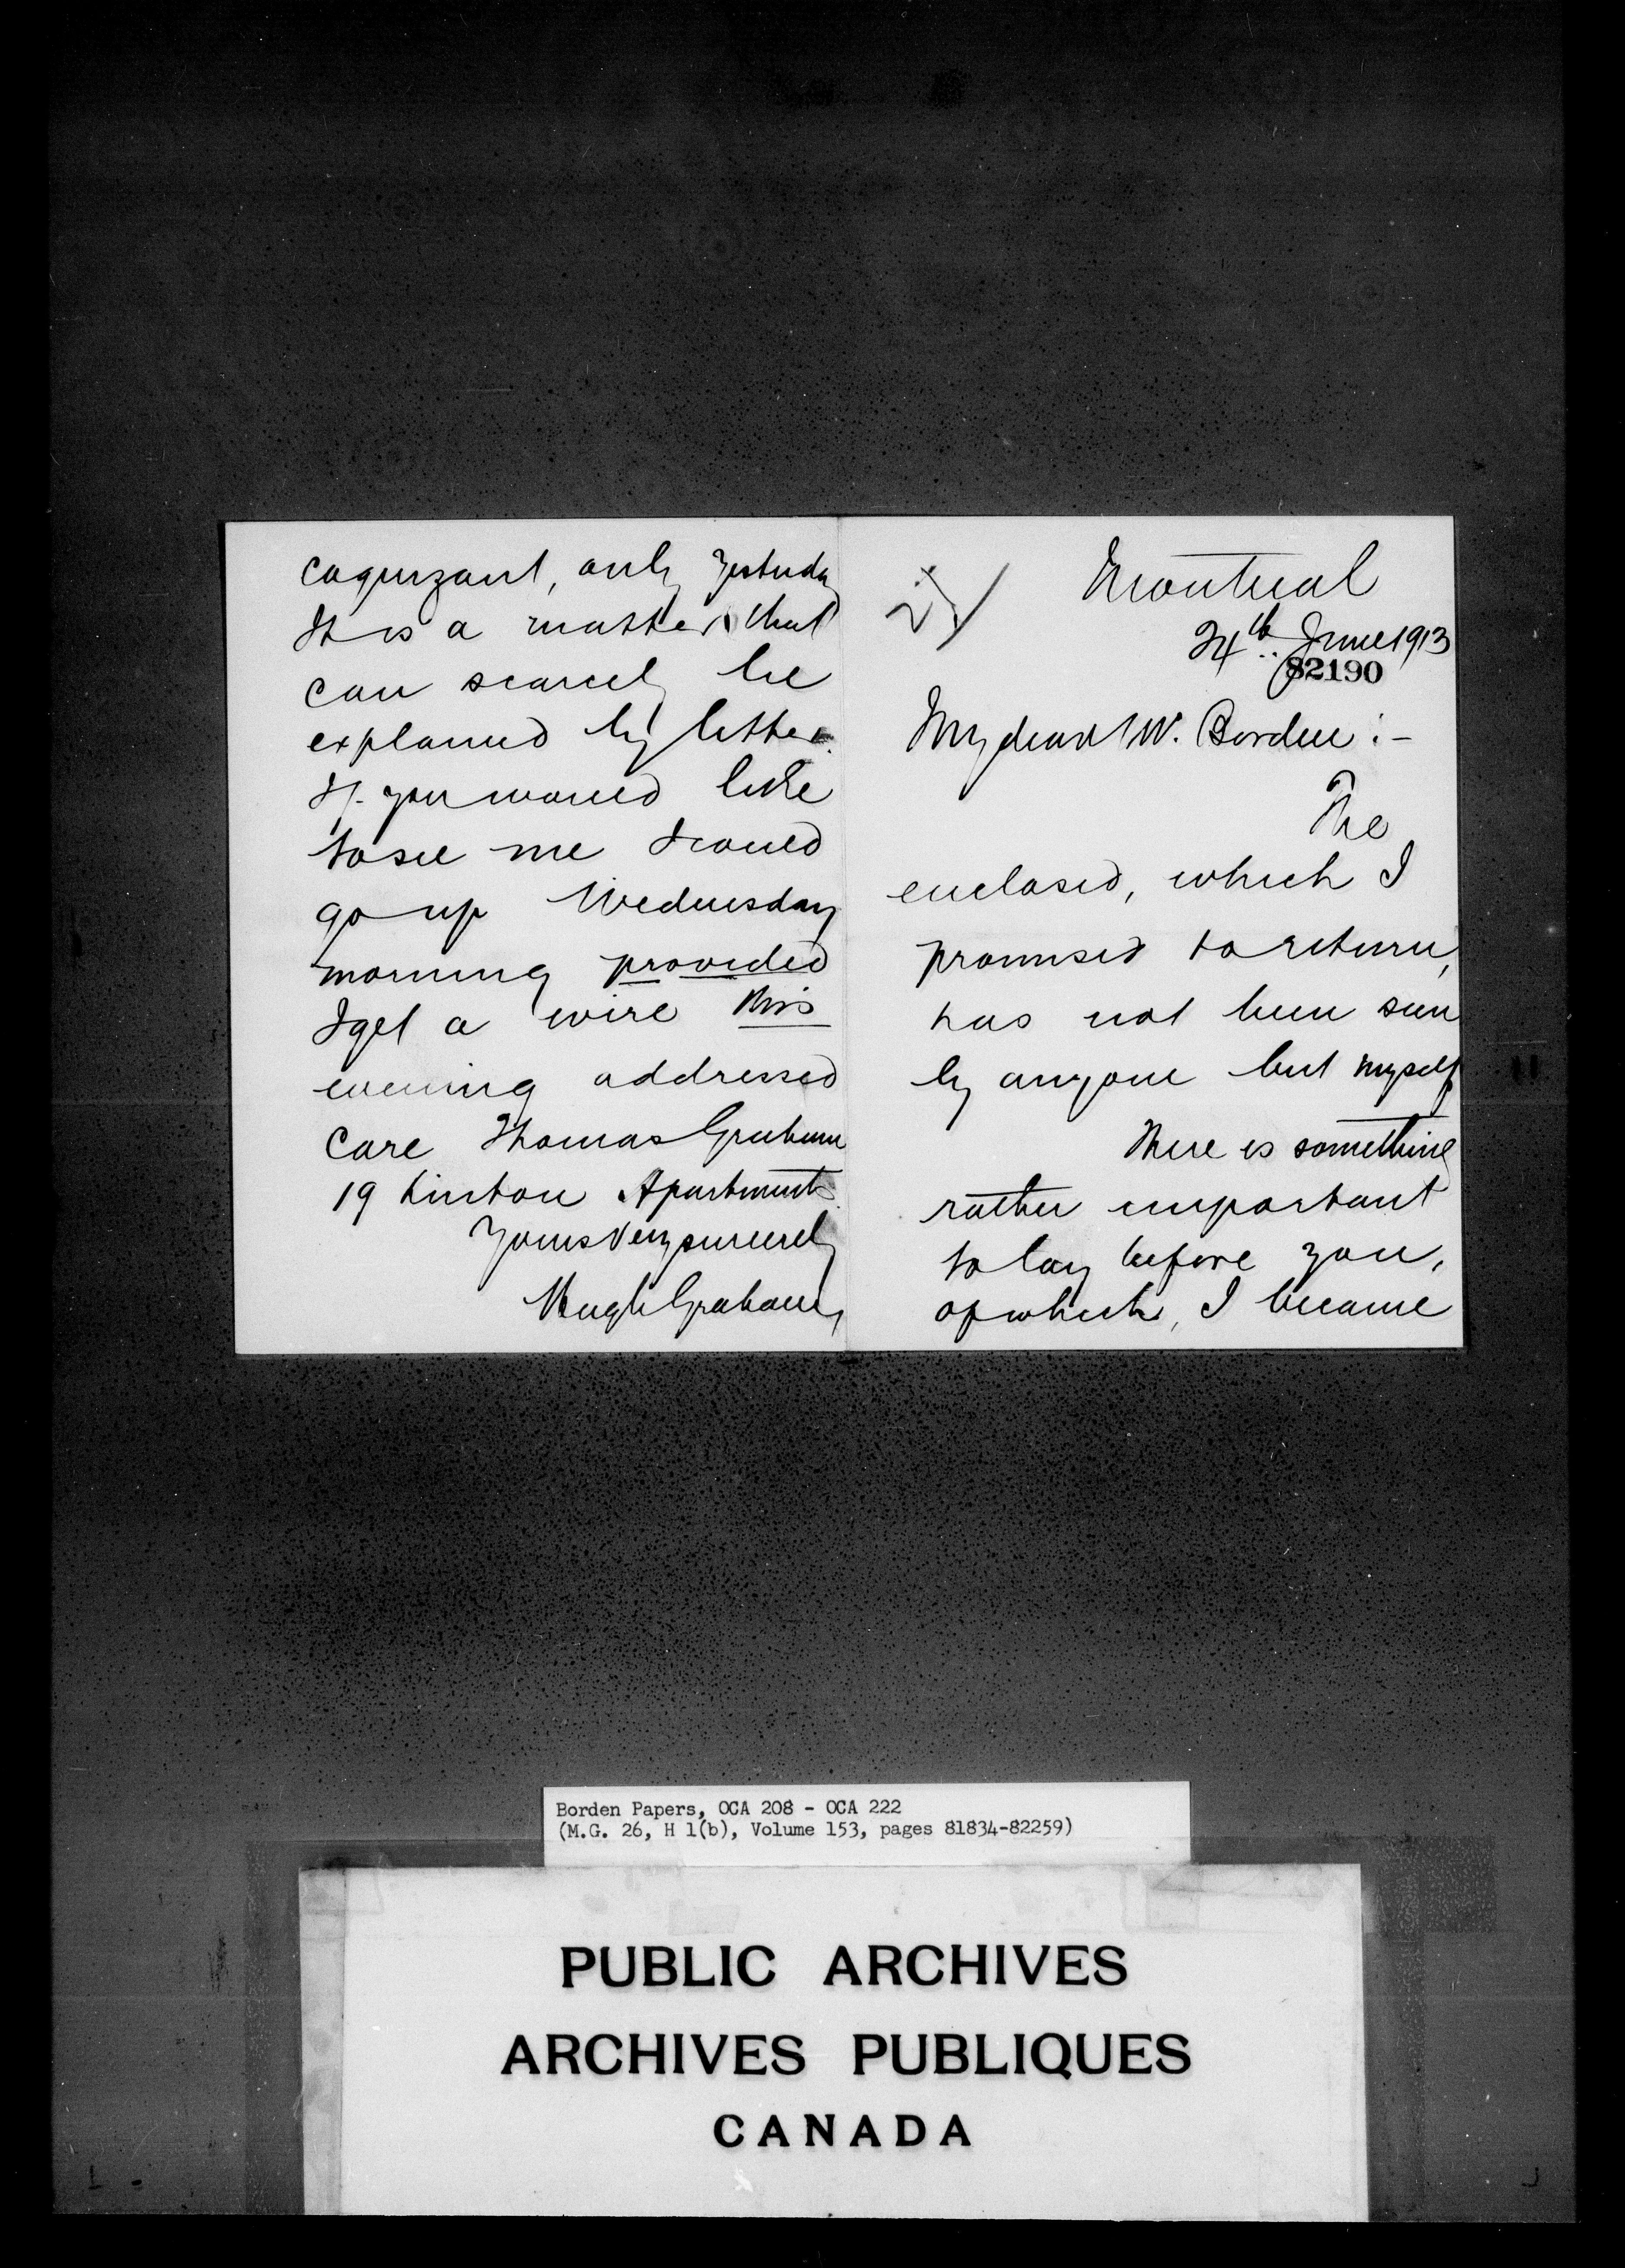 Montreal
24th June 1913
82190
My dear Mr. Borden :-
The
enclosed, which I
promised to return,
has not been seen
by anyone but myself
There is something
rather important
to lay before you,
of which, I became
cognizant, only yesterday
It is a matter that
can scarcely be
explained by letter.
If you would like
to see me I could
go up Wednesday
morning provided
I get a wire this
evening addressed
Care Thomas Graham
19 Linton Apartments
Yours very sincerely
Hugh Graham
Borden Papers, OCA 208 - OCA 222
(M.G. 26, H 1(b), Volume 153, pages 81834-82259)
PUBLIC ARCHIVES
ARCHIVES PUBLIQUES
CANADA